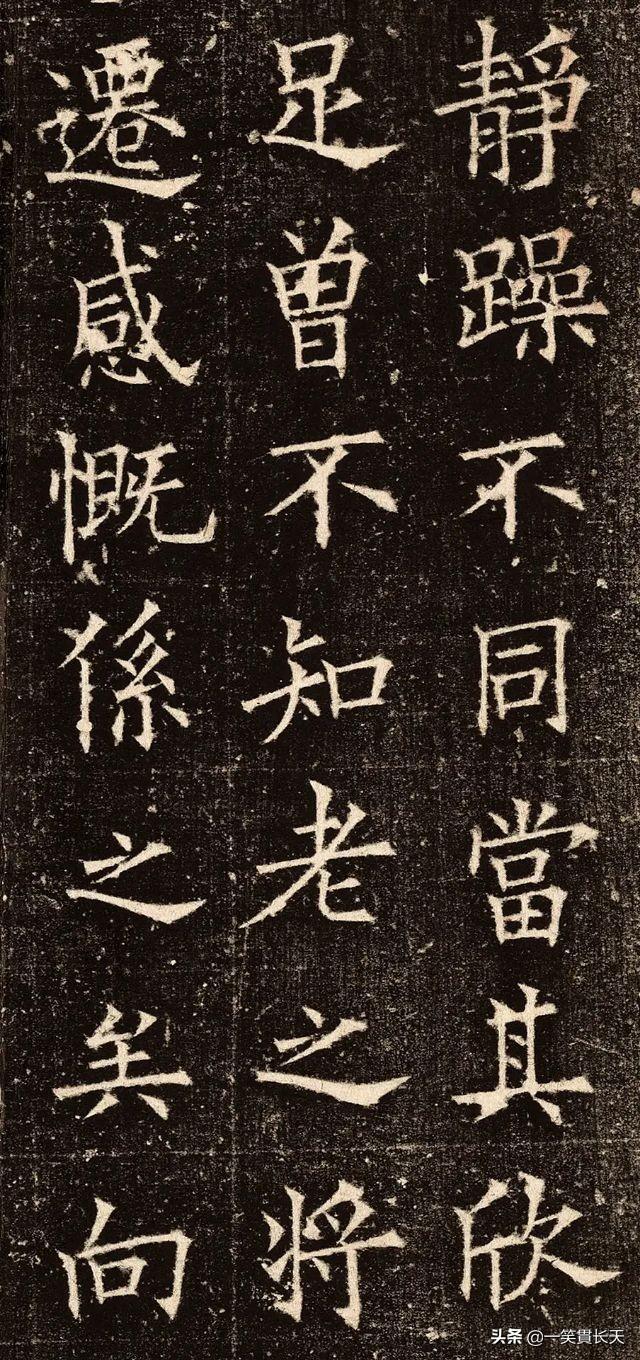 靜躁不同當其欣
足曾不知老之將
遷感慨係之矣向
头条 @一笑貫长天